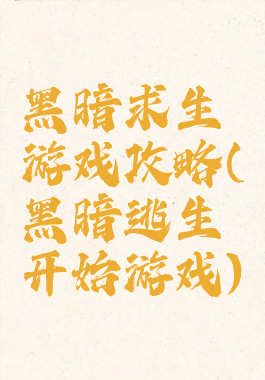 黑暗求生
游戏攻略(
黑暗逃生
开始游戏)